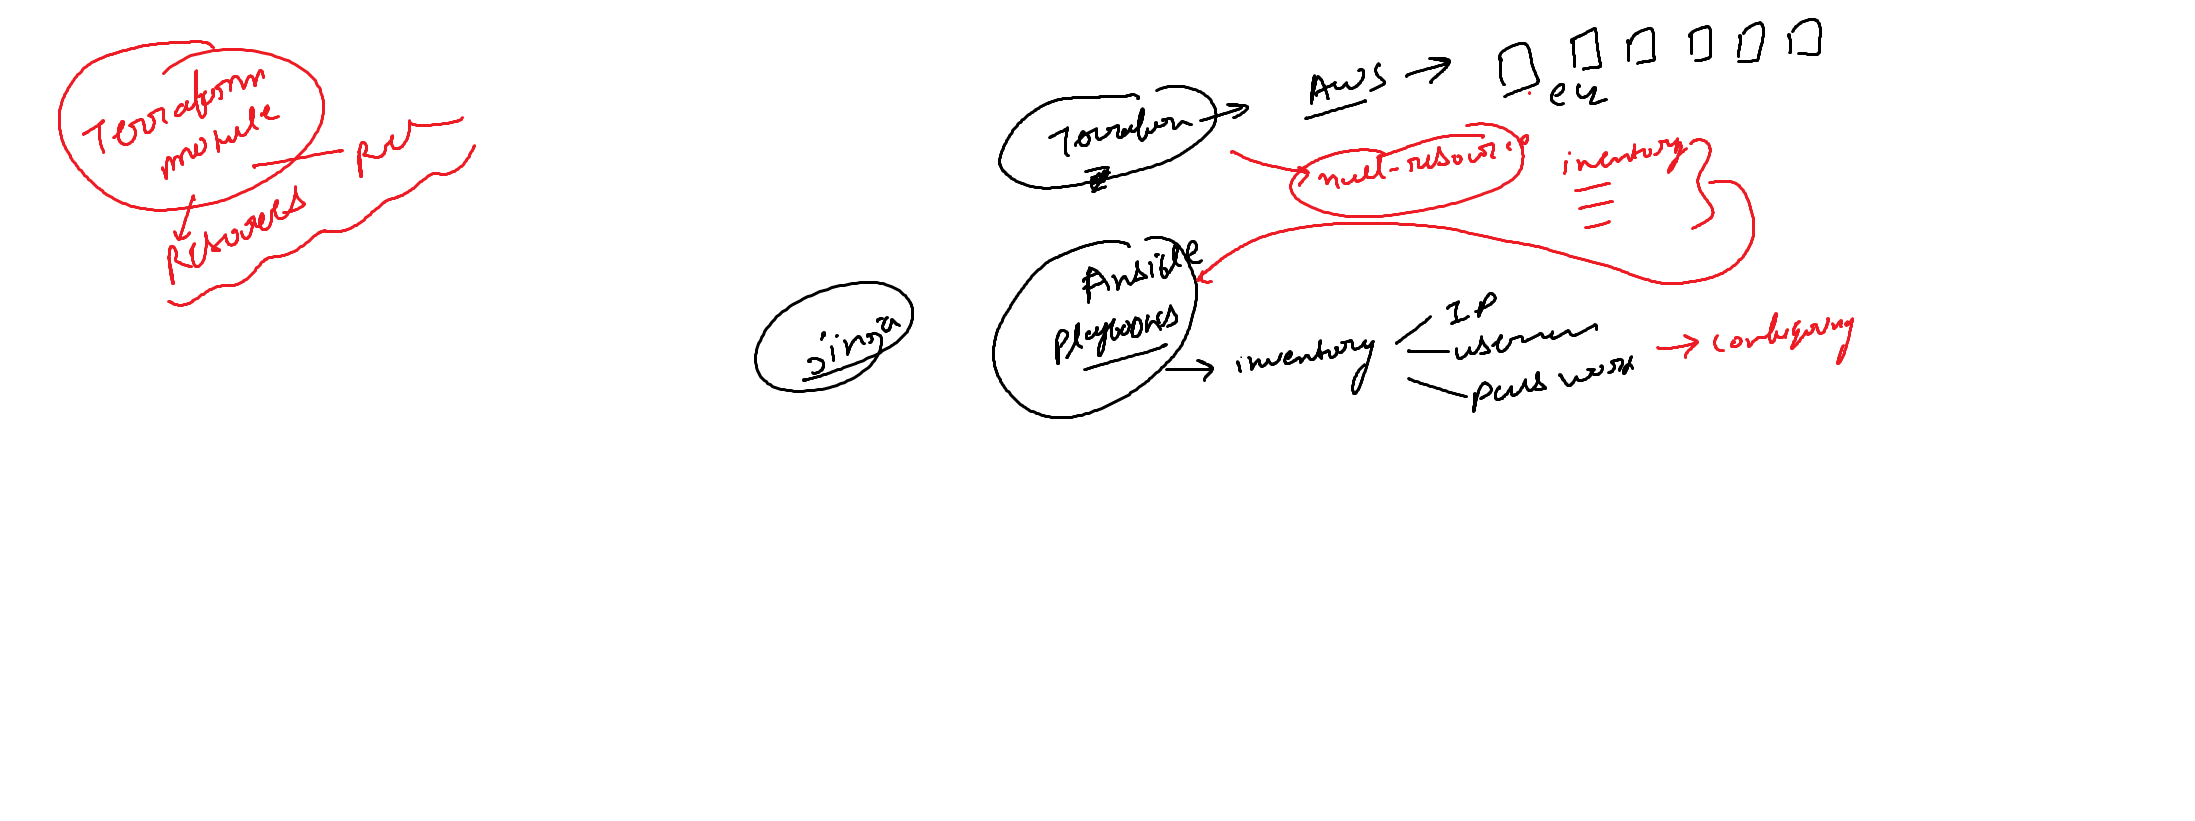 Terraform
module
Resources
Terraform
AWS
ec2
null-resource
inventory
Ansible
Playbooks
jinja
inventory
IP
user
password
configuring